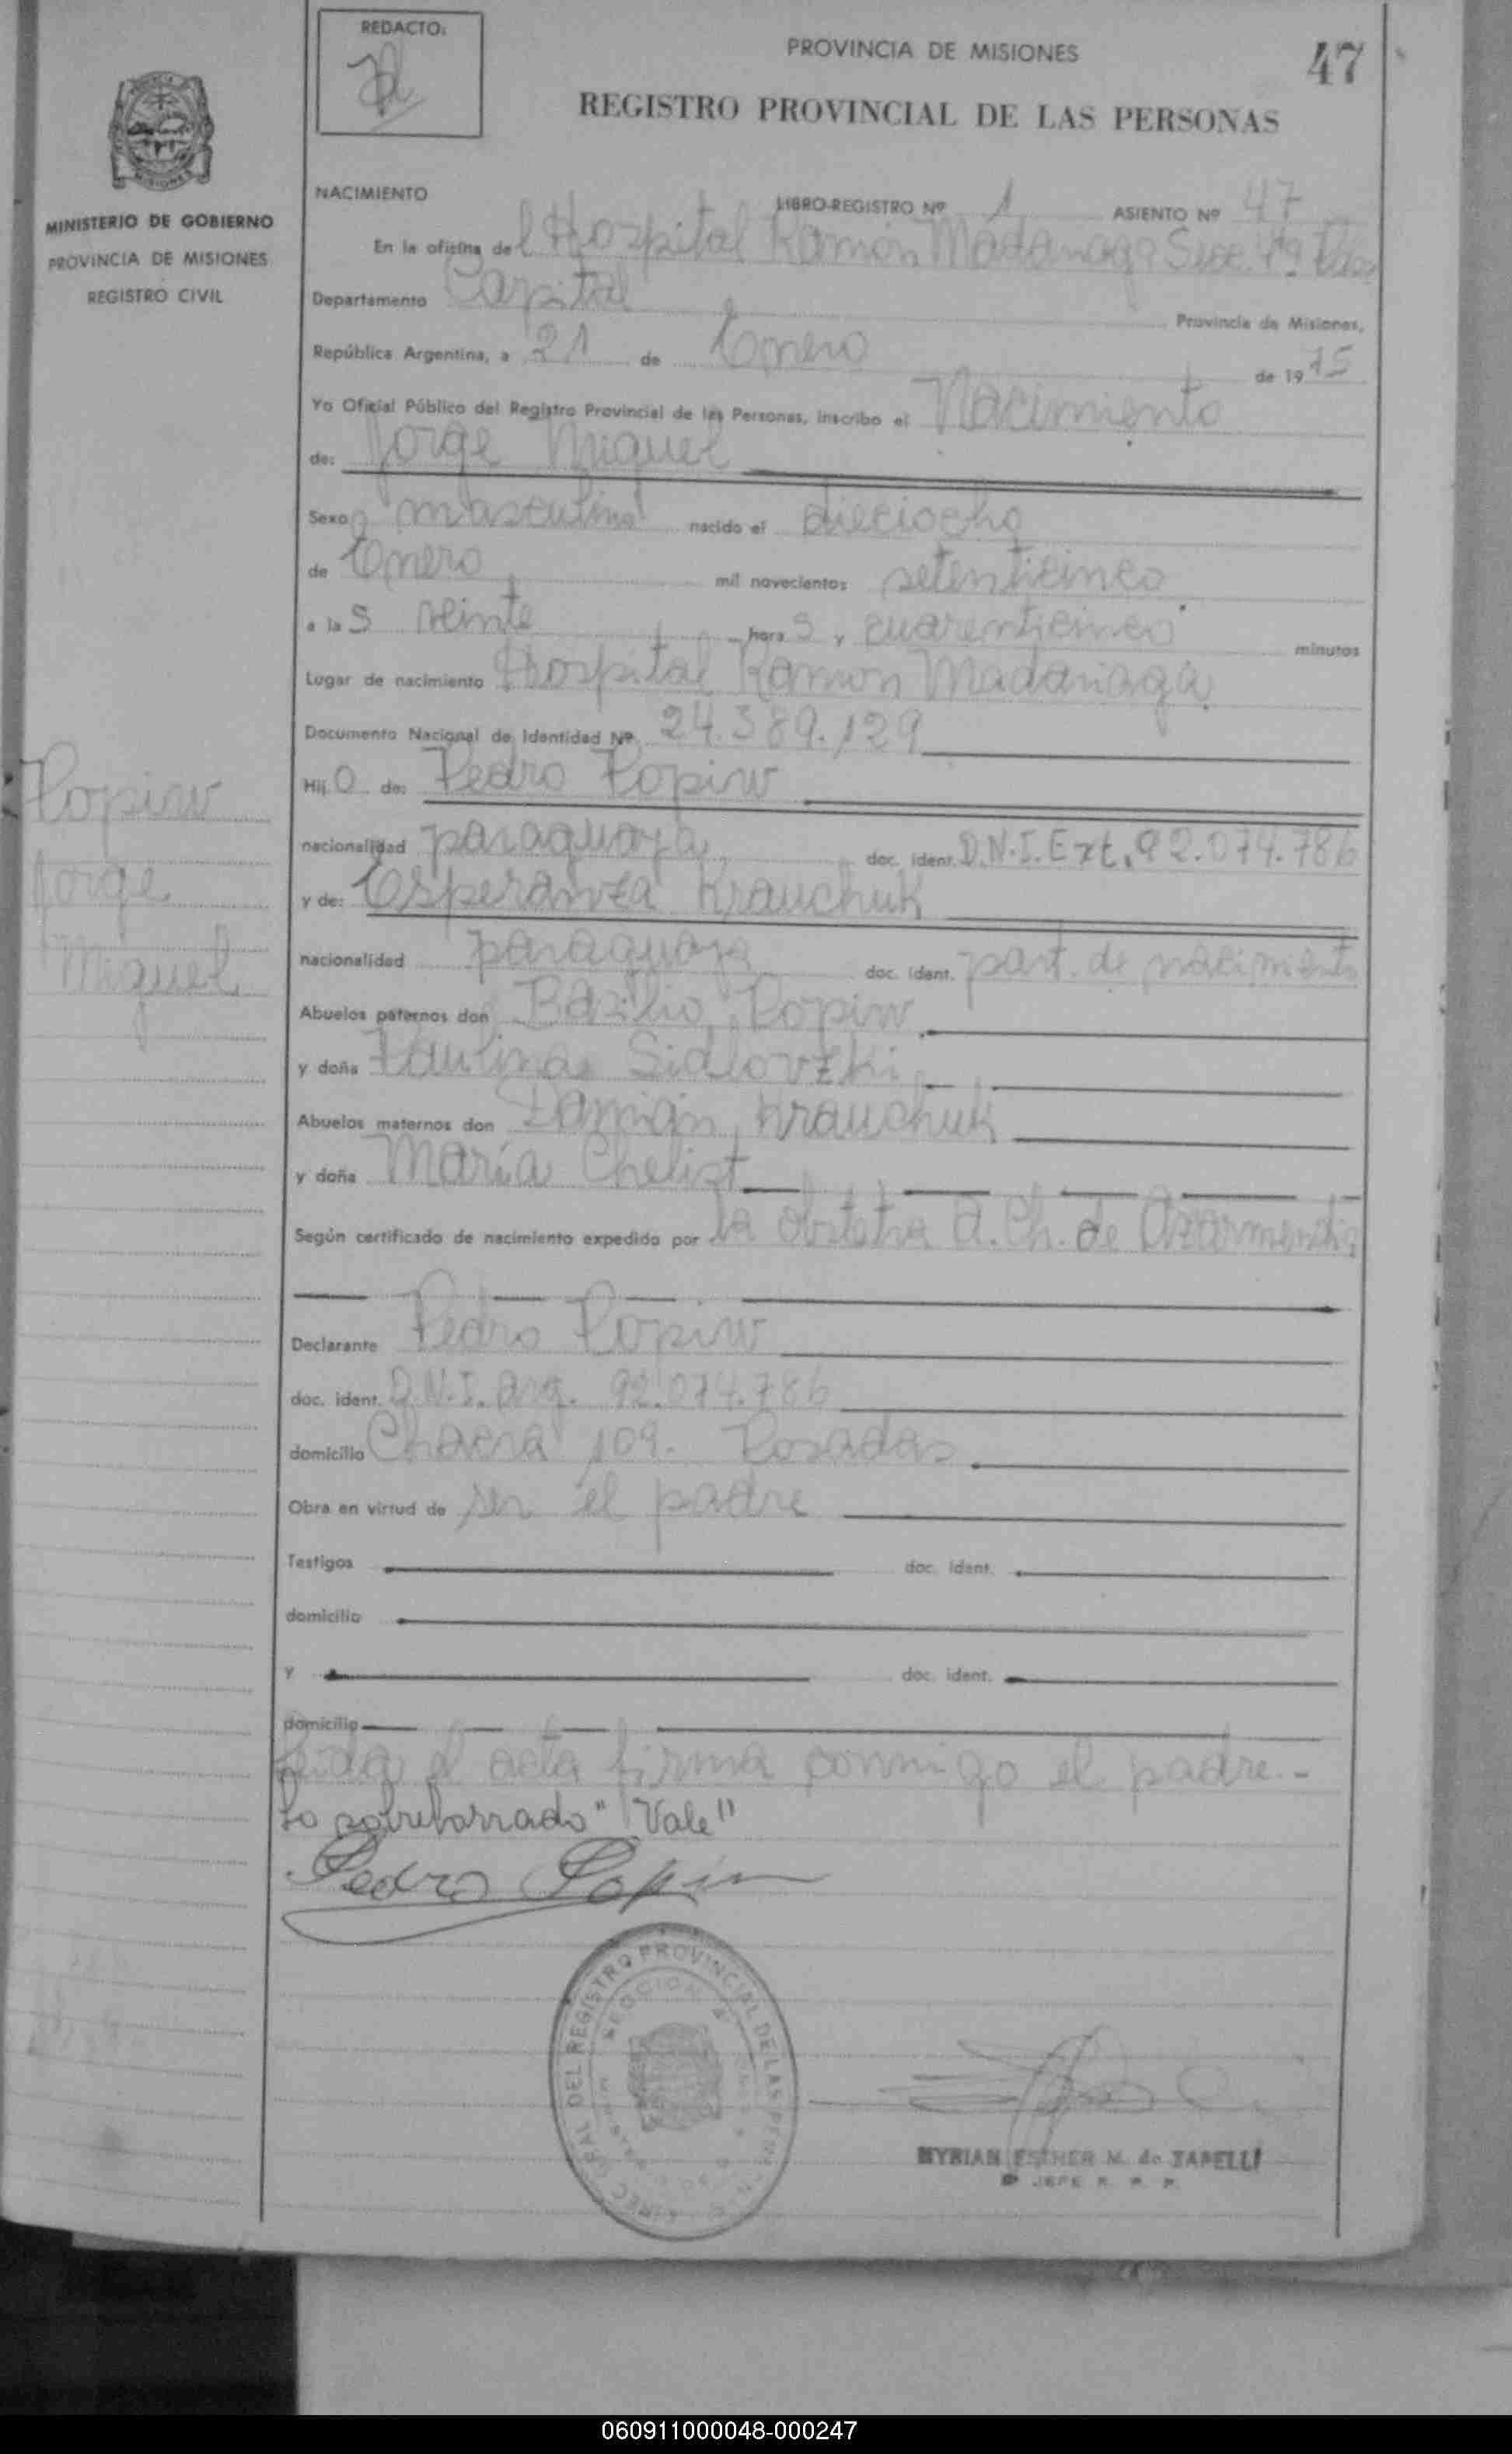 REDACTO:
PROVINCIA DE MISIONES
47
REGISTRO PROVINCIAL DE LAS PERSONAS
MINISTERIO DE GOBIERNO
PROVINCIA DE MISIONES
REGISTRO CIVIL
NACIMIENTO LIBRO-REGISTRO Nº 1 ASIENTO Nº 47
En la oficina del Hospital Ramón Madariaga Secc. 4ª
Departamento Capital Provincia de Misiones,
República Argentina, a 21 de Enero de 1975
Yo Oficial Público del Registro Provincial de las Personas, inscribo el Nacimiento
de: Jorge Miguel
Sexo masculino nacido el dieciocho
de Enero mil novecientos setenticinco
a las veinte horas y cuarenticinco minutos
Lugar de nacimiento Hospital Ramon Madariaga
Documento Nacional de Identidad Nº 24.389.129
Hijo de: Pedro Popiw
Popiw
Jorge
Miguel
nacionalidad paraguaya doc. ident. D.N.I. Ext. 92.074.786
y de: Esperanza Krauchuk
nacionalidad paraguaya doc. ident. part. de nacimiento
Abuelos paternos don Basilio Popiw
y doña Paulina Sidlovzki
Abuelos maternos don Damián Krauchuk
y doña María Chelist
Según certificado de nacimiento expedido por la obstetra A. Ch. de Azarmendia
Declarante Pedro Popiw
doc. ident. D.N.I. Arg. 92.074.786
domicilio Chacra 109. Posadas
Obra en virtud de ser el padre
Testigos doc. ident.
domicilio
y doc. ident.
domicilio
Leida el acta firma conmigo el padre.-
Lo sobreborrado "Vale"
Pedro Popiw
REGISTRO PROVINCIAL DE LAS
MYRIAN ESTHER M. de TAPELLI
JEFE R. P. P.
060911000048-000247